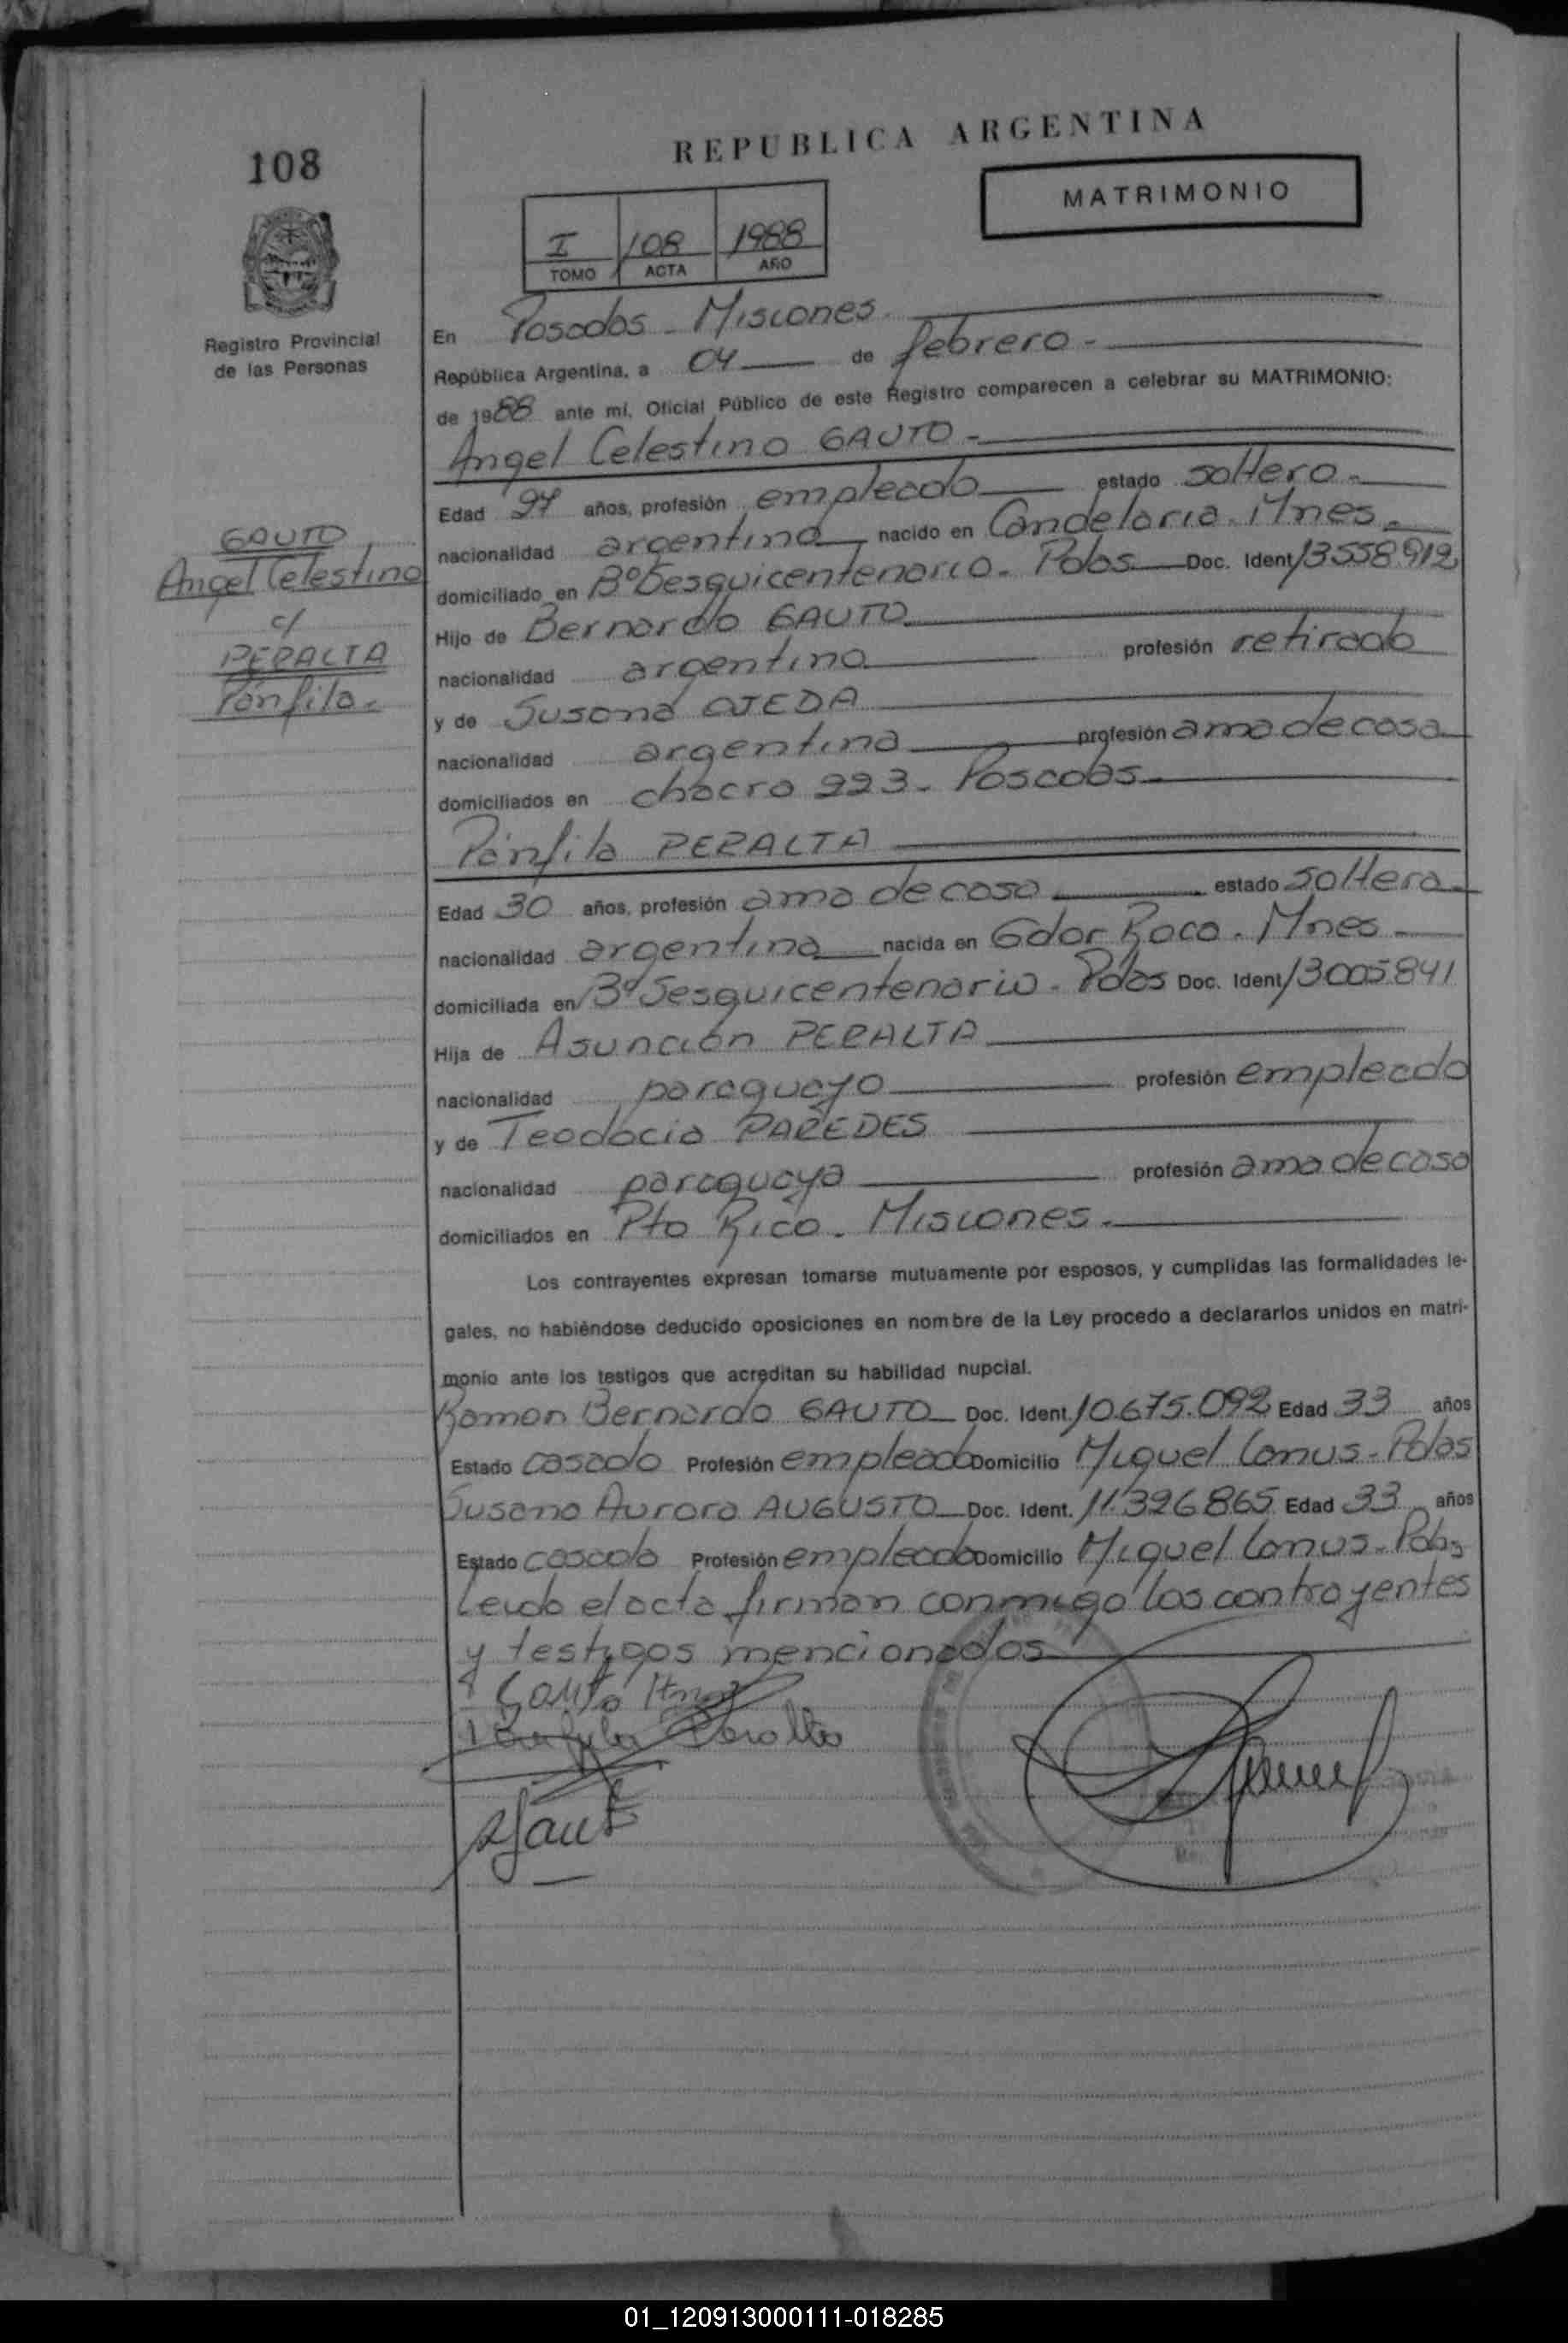 REPUBLICA ARGENTINA
108
MATRIMONIO
I 108 1988
TOMO ACTA AÑO
Registro Provincial
de las Personas
En Posadas - Misiones.
República Argentina, a 04 de febrero -
de 1988 ante mí, Oficial Público de este Registro comparecen a celebrar su MATRIMONIO:
Angel Celestino GAUTO -
Edad 27 años, profesión empleado estado soltero -
nacionalidad argentina nacido en Candelaria. Mnes -
domiciliado en Bº Sesquicentenario - Pdas Doc. Ident 13558.912
Hijo de Bernardo GAUTO
nacionalidad argentino profesión retirado
y de Susana OJEDA
nacionalidad argentina profesión ama de casa
domiciliados en chacra 223 - Posadas -
GAUTO
Angel Celestino
c/
PERALTA
Pánfila -
Pánfila PERALTA
Edad 30 años, profesión ama de casa estado Soltera -
nacionalidad argentina nacida en Gdor Roca. Mnes -
domiciliada en Bº Sesquicentenario - Pdas Doc. Ident 13005841
Hija de Asunción PERALTA
nacionalidad paraguayo profesión empleado
y de Teodocia PAREDES
nacionalidad paraguaya profesión ama de casa
domiciliados en Pto Rico - Misiones -
Los contrayentes expresan tomarse mutuamente por esposos, y cumplidas las formalidades le-
gales, no habiéndose deducido oposiciones en nombre de la Ley procedo a declararlos unidos en matri-
monio ante los testigos que acreditan su habilidad nupcial.
Ramon Bernardo GAUTO Doc. Ident. 10.675.092 Edad 33 años
Estado casado Profesión empleado Domicilio Miguel Lanus - Pdas
Susana Aurora AUGUSTO Doc. Ident. 11.326865 Edad 33 años
Estado casada Profesión empleada Domicilio Miguel Lanus - Pdas
Leida el acta firman conmigo los contrayentes
y testigos mencionados
Gauto
Panfila Peralta
01_120913000111-018285